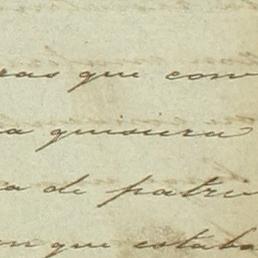 ras que con
a quisiera
a de patri
on que estaba